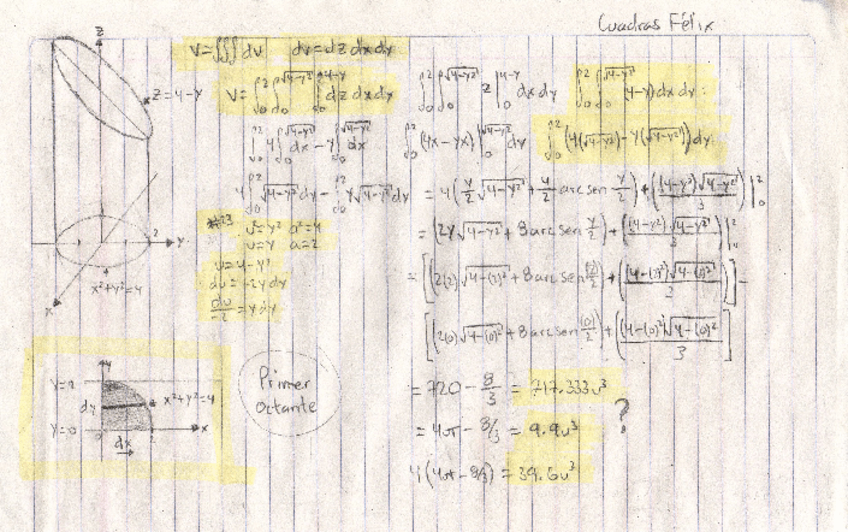 Cuadras Félix
V=∭dv dv=dz dx dy
V=∫₀²∫₀^√(4-y²)∫₀^(4-y) dz dx dy
∫₀²∫₀^√(4-y²) z|₀^(4-y) dx dy ∫₀²∫₀^√(4-y²) (4-y)dx dy:
∫₀² 4∫₀^√(4-y²) dx - y∫₀^√(4-y²) dx ∫₀² (4x-yx)|₀^√(4-y²) dy ∫₀² (4(√(4-y²))-y(√(4-y²)))dy
4∫₀² √(4-y²) dy - ∫₀² y√(4-y²) dy = 4(y/2 √(4-y²) + 4/2 arc sen y/2) + ((4-y²)√(4-y²)/3)|₀²
#23 v²=y² a²=4
v=y a=2
v=4-y²
dv=-2y dy
dv/-2 = y dy
= (2y√(4-y²) + 8 arc sen y/2) + ((4-y²)√(4-y²)/3)|
= [(2(2)√(4-(2)²) + 8 arc sen (2)/2) + ((4-(2)²)√(4-(2)²)/3)] -
[(2(0)√(4-(0)²) + 8 arc sen (0)/2) + ((4-(0)²)√(4-(0)²)/3)]
= 720 - 8/3 = 717.333u³
= 4π - 8/3 = 9.9u³ ?
4(4π - 8/3) = 39.6u³
z
z=4-y
2
y
x²+y²=4
x
y
y=2
x²+y²=4
dy
y=0
0
2
x
dx
Primer
octante